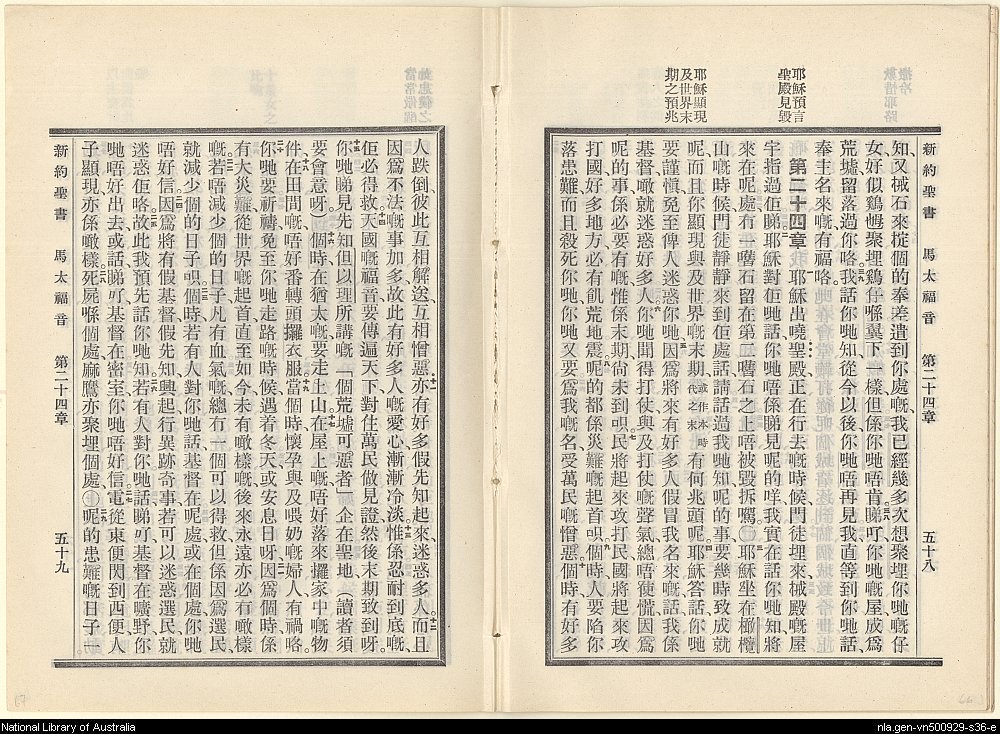 新約聖書　馬太福音　第二十四章　五十八
耶穌預言
聖殿見毀
耶穌顯現
及世界末
期之預兆
知、又掝石來掟個的奉差遣到你處嘅、我已經幾多次想聚埋你哋嘅仔
女、好似鷄乸聚埋鷄仔喺翼下一樣、但係你哋唔肯、睇吓、你哋嘅屋成爲
荒墟、留落過你咯、我話你哋知、從今以後、你哋唔再見我、直等到你哋話、
奉主名來嘅有福咯。
第二十四章　耶穌出嘵聖殿、正在行去嘅時候、門徒埋來、掝殿嘅屋
宇指過佢睇、耶穌對佢哋話、你哋唔係睇見呢的咩、我實在話你哋知、將
來在呢處、有一嚿石留在第二嚿石之上、唔被毀拆嘅、耶穌坐在橄欖
山嘅時候、門徒靜靜來到佢處、請話過我哋知、呢的事要幾時致成就
呢、而且你顯現與及世界嘅末期、或作本時代之末有何兆頭呢、耶穌答話、你哋
要謹愼、免至俾人迷惑你哋、因爲將來有好多人假冒我名來、話我係
基督、噉就迷惑好多人、你哋聞得打仗、與及打仗嘅聲氣、總唔使慌、因爲
呢的事、係必要有嘅、惟係末期尚未到呮、民將起來攻打民、國將起來攻
打國、好多地方必有飢荒地震、呢的都係災難嘅起首呮、個時人要陷你
落患難、而且殺死你哋、你哋又要爲我嘅名、受萬民嘅憎惡、個時有好多
人跌倒、彼此互相解送、互相憎惡、亦有好多假先知起來、迷惑多人、而且
因爲不法嘅事加多、故此有好多人嘅愛心、漸漸冷淡、惟係忍耐到底嘅、
佢必得救、天國嘅福音、要傳遍天下、對住萬民做見證、然後末期致到呀。
你哋睇見先知但以理所講嘅、一個荒墟可惡者、企在聖地、（讀者須
要會意呀）個時在猶太嘅、要走上山、在屋上嘅、唔好落來攞家中嘅物
件、在田間嘅、唔好番轉頭攞衣服、當個時懷孕、與及喂奶嘅婦人有禍咯、
你哋要祈禱、免至你哋走路嘅時候、遇着冬天、或安息日呀、因爲個時係
有大災難、從世界嘅起首、直至如今、未有噉樣嘅、後來永遠亦必冇噉樣
嘅、若唔減少個的日子、凡有血氣嘅、總冇一個可以得救、但係因爲選民、
就減少個的日子呮、個時若有人對你哋話、基督在呢處、或在個處、你哋
唔好信、因爲將有假基督、假先知興起、行異跡奇事、若可以迷惑選民、就
迷惑佢咯、故此我預先話你哋知、若有人對你哋話、睇吓、基督在曠野、你
哋唔好出去、或話睇吓、基督在密室、你哋唔好信、電從東便閃到西便、人
子顯現亦係噉樣、死屍喺個處、麻鷹亦聚埋個處。呢的患難嘅日子一
新約聖書　馬太福音　第二十四章　五十九
National Library of Australia
nla.gen-vn500929-s36-e